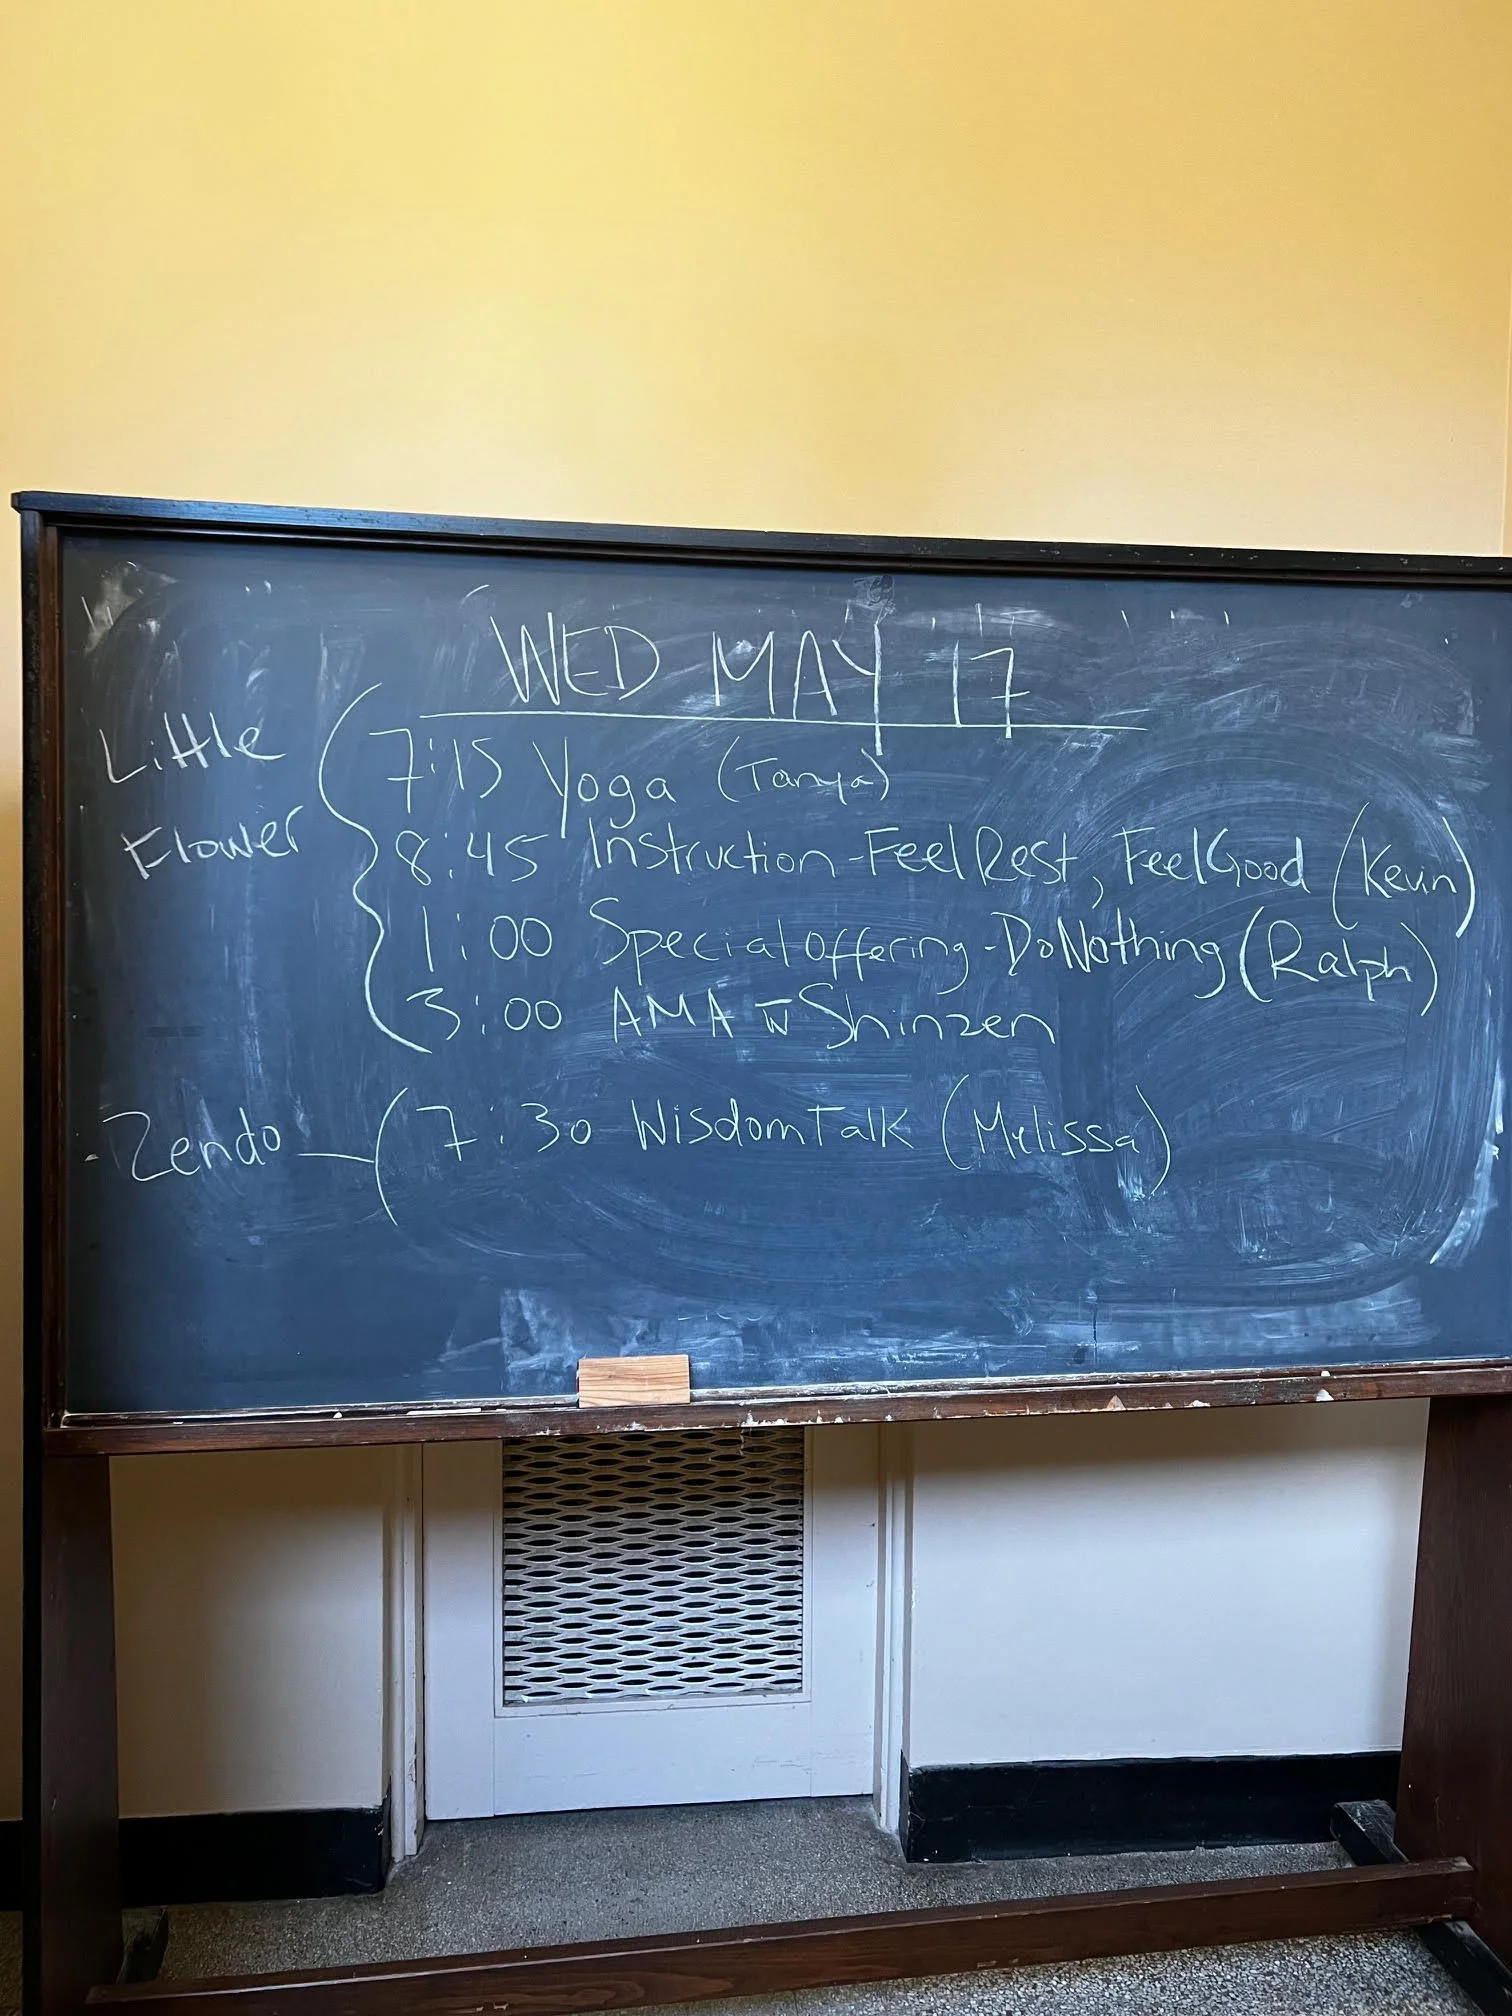 WED MAY 17
Little
Flower
7:15 Yoga (Tanya)
8:45 Instruction - Feel Rest, Feel Good (Kevin)
1:00 Special Offering - Do Nothing (Ralph)
3:00 AMA w̅ Shinzen
Zendo
7:30 Wisdom Talk (Melissa)